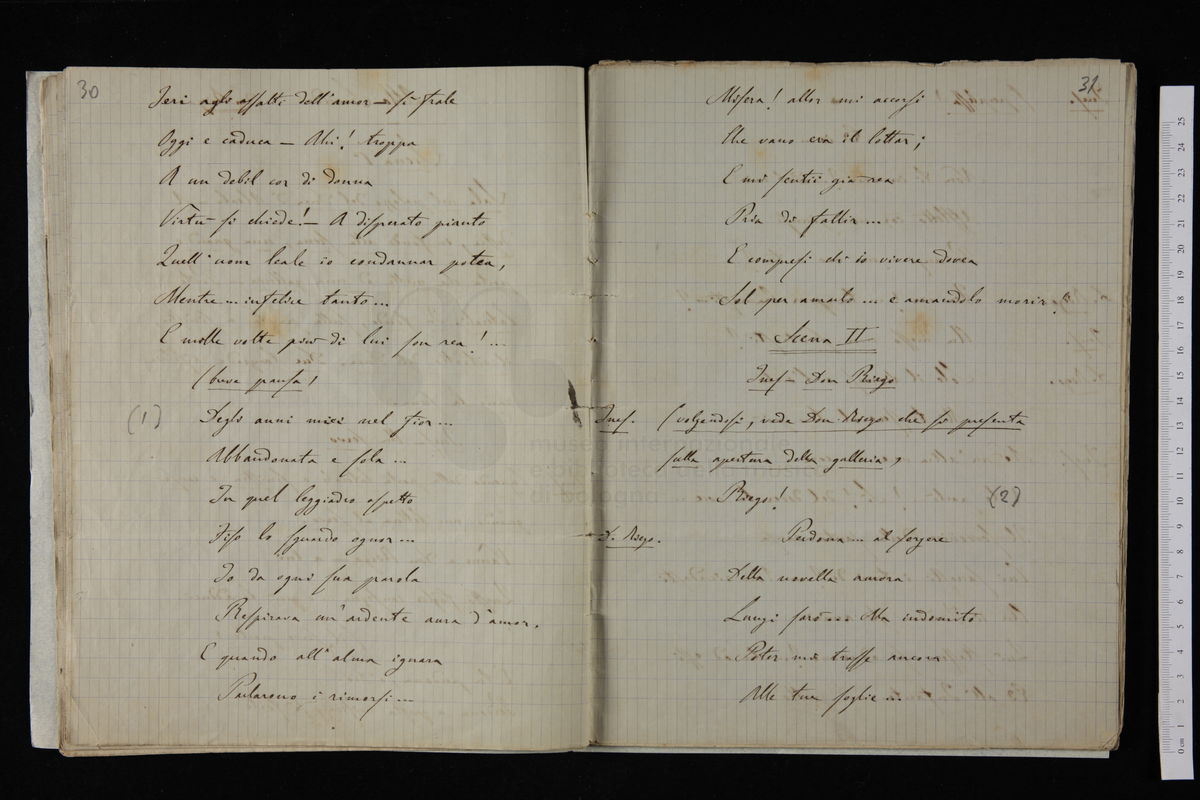 30
Jeri agli assalti dell'amor — sì frale
Oggi e caduca — Ahi! troppa
A un debil cor di donna
Virtù si chiede! — A disperato pianto
Quell'uom leale io condannar potea,
Mentre... infelice tanto...
E molte volte più di lui son rea!...
(breve pausa)
(1) Degli anni miei nel fior...
Abbandonata e sola...
In quel leggiadro aspetto
Fiso lo sguardo ognor...
Io da ogni sua parola
Respirava un'ardente aura d'amor.
E quando all'alma ignara
Parlarono i rimorsi...
31
Misera! allor mi accorsi
Che vano era il lottar;
E mi sentii già rea
Pria di fallir...
E compresi ch'io vivere dovea
Sol per amarlo... e amandolo morir!
Scena II
Ines — Don Riego
Ines. (volgendosi, vede Don Riego che si presenta
sulla apertura della galleria)
Riego! (2)
D. Riego. Perdona... al sorgere
Della novella aurora
Lungi sarò... Ma indomito
Poter mi trasse ancora
Alle tue soglie...